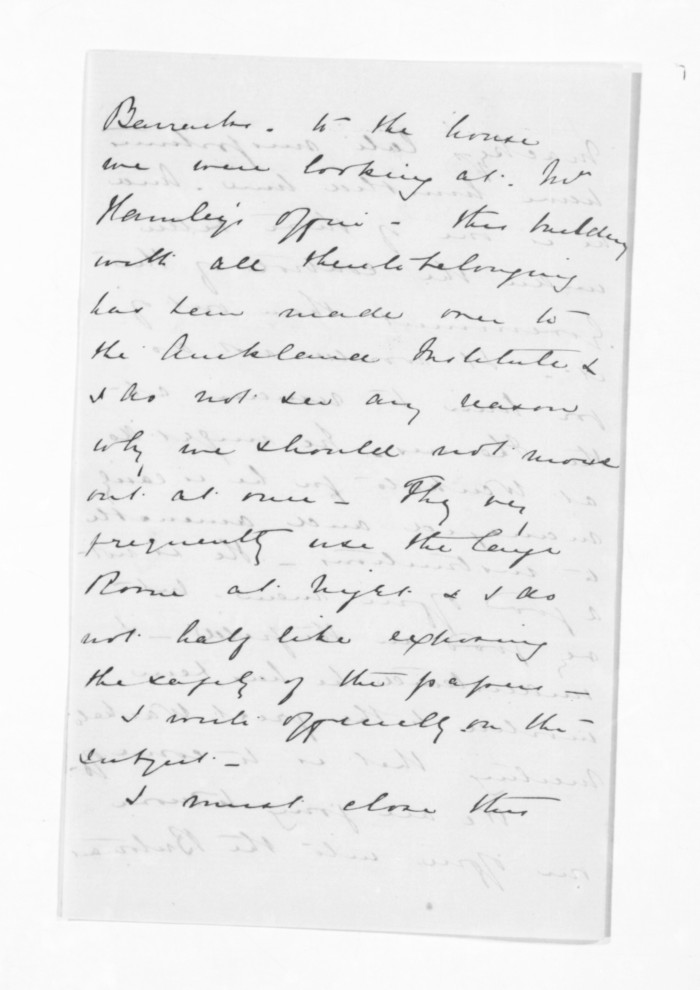 Barracks. to the house
we were looking at. Mr
Hamley's office - This building
with all thereto belonging
has been made over to
the Auckland Institute &
I do not see any reason
why we should not move
out at once - They very
frequently use the large
Room at night & I do
not half like exposing
the safety of the papers -
I write officially on the
subject -
I must close this